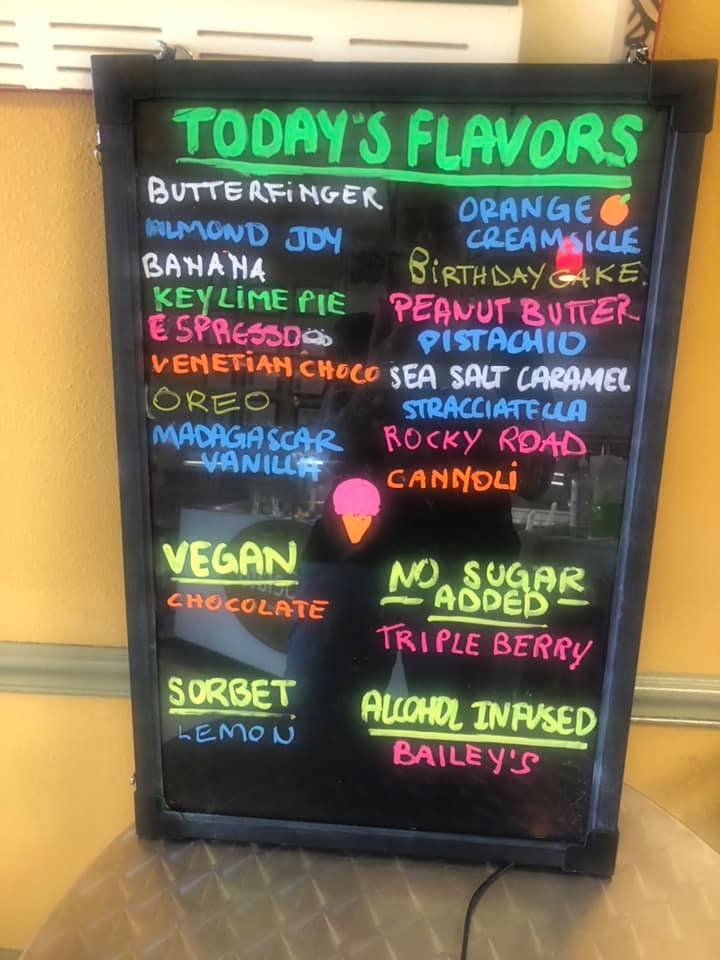 TODAY'S FLAVORS
BUTTERFINGER
ALMOND JOY
BANANA
KEY LIME PIE
ESPRESSO
VENETIAN CHOCO
OREO
MADAGASCAR
VANILLA
ORANGE
CREAMSICLE
BIRTHDAY CAKE
PEANUT BUTTER
PISTACHIO
SEA SALT CARAMEL
STRACCIATELLA
ROCKY ROAD
CANNOLI
VEGAN
CHOCOLATE
NO SUGAR
ADDED
TRIPLE BERRY
SORBET
LEMON
ALCOHOL INFUSED
BAILEY'S